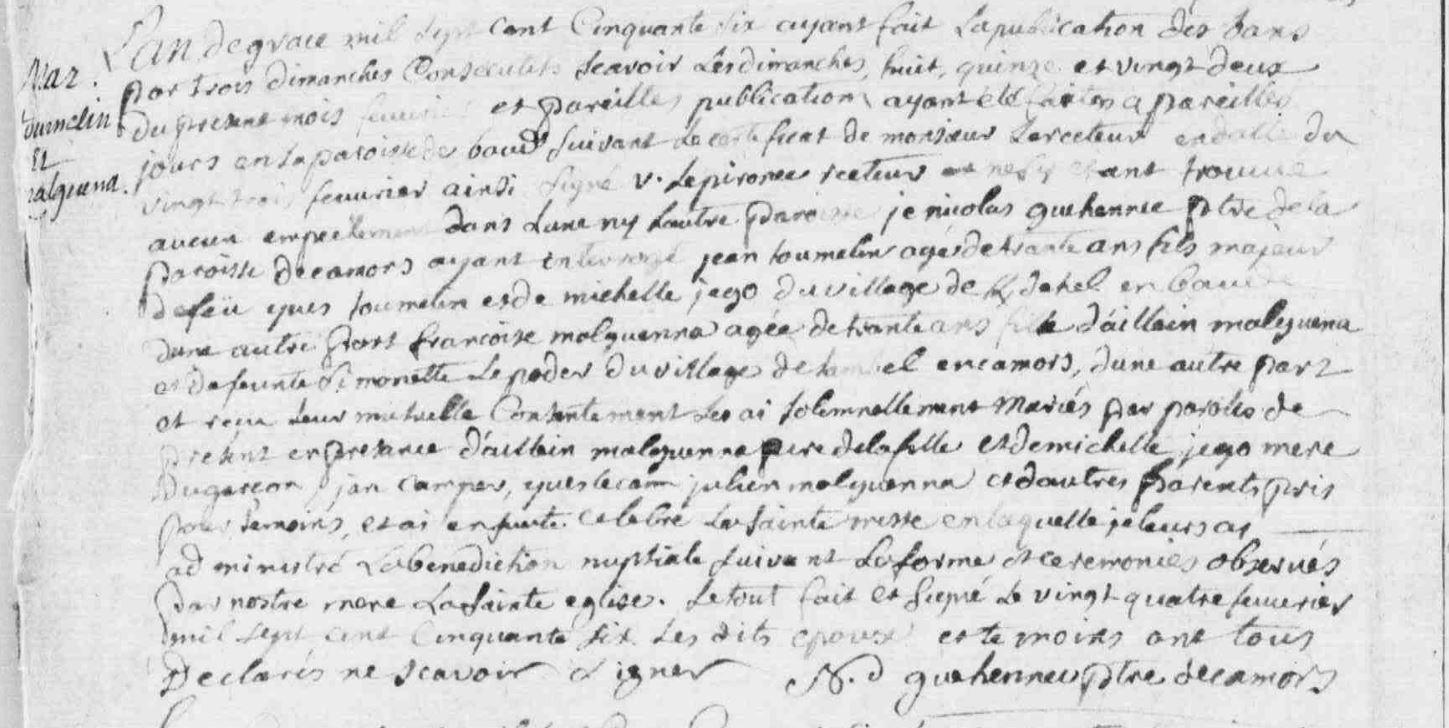 Lan de grace mil sept cent Cinquante six ayant fait La publication des bans
Mar.
par trois dimanches Consecutifs scavoir Les dimanches, huit, quinze et vingt deux
du present mois feuvrier et pareilles publication ayant été faittes a pareilles
toumelin
et
jours en la paroisse de baud suivant Le certificat de monsieur Le recteur en datte du
malguena.
vingt trois feuvrier ainsi signé v. Lepironec recteur ne s'y etant trouvué
aucun empeschement dans L'une ny L'autre paroisse je nicolas guehennec ptre de la
paroisse de camors ayant interrogé jean toumelin agé de trante ans fils majeur
de feü yves toumelin et de michelle jego du village de en baud
dune autre part francoise malguenna agée de trante ans fille d'aillain malguena
et defeunte Simonette Le poder du village de en camors, dune autre part
et reçu Leur mutuelle Consentement Les ai solemnellement Mariés par paroles de
present en presance d'aillain malguenna pere de la fille et de michelle jego mere
Du garçon, jan camper, yves lecam julien malguenna et dautres parents pris
pour temoins, et ai ensuite celebré La sainte messe en laquelle je leurs ai
administré La benediction nuptiale suivant La forme et ceremonies observés
par nostre mere La Sainte eglise. Le tout fait et signé Le vingt quatre feuvrier
mil sept cent Cinquante six Les dits epoux et temoins ont tous
Declarés ne scavoir signer N. d guehennec ptre de camors